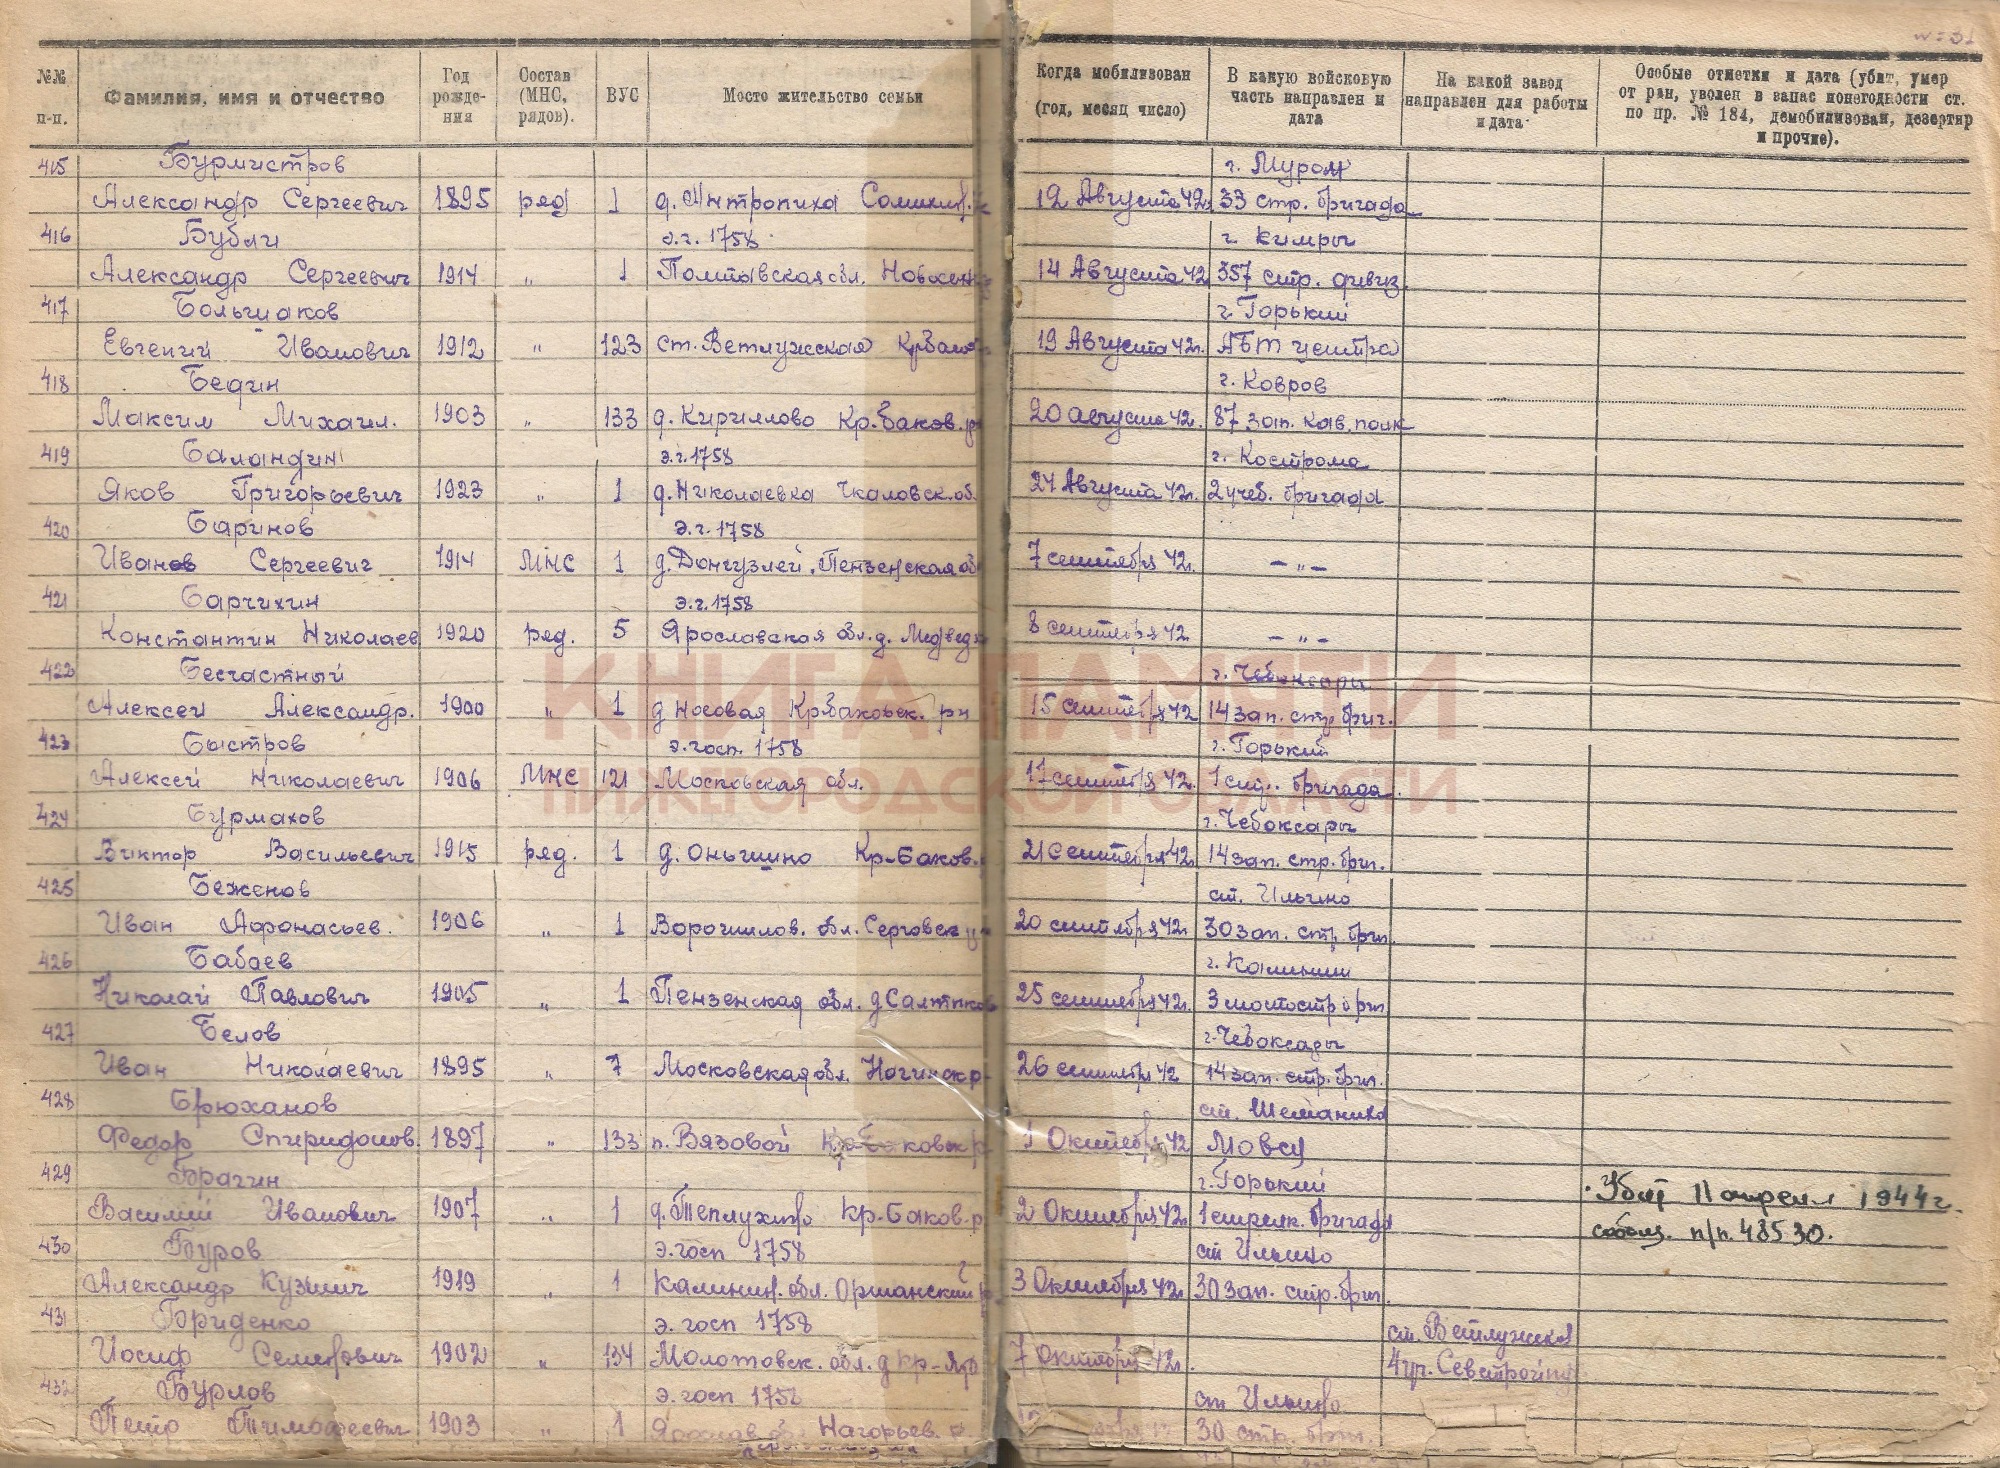 №№ п-п.
Фамилия, имя и отчество
Год рожде-ния
Состав (МНС, рядов).
ВУС
Место жительство семьи
Когда мобилизован (год, месяц число)
В какую войсковую часть направлен и дата
На какой завод направлен для работы и дата
Особые отметки и дата (убит, умер от ран, уволен в запас понегодности ст. по пр. № 184, демобилизован, дезертир и прочие).
415 Бурмистров г. Муром
Александр Сергеевич 1895 ряд 1 д. Антропиха 12 Августа 42. 33 стр. бригада
416 Бубли э.г. 1758 г. Кимры
Александр Сергеевич 1914 " 1 Полтавская обл. 14 Августа 42 357 стр. дивиз.
417 Большаков г. Горький
Евгений Иванович 1912 " 123 ст. Ветлужская 19 Августа 42г. АБТ центра
418 Бедин г. Ковров
Максим Михаил. 1903 " 133 д. Кириллово Кр.баков. 20 августа 42. 87 зап. кав. полк
419 Баландин э.г. 1758 г. Кострома
Яков Григорьевич 1923 " 1 д. Николаевка Чкаловск. об. 24 Августа 42г. 2 учеб. бригада
420 Баринов э.г. 1758
Иванов Сергеевич 1914 МНС 1 д. Донгузлей. Пензенская об 7 сентября 42г. — " —
421 Барчихин э.г. 1758
Константин Николаев 1920 ряд. 5 Ярославская обл. д. 8 сентября 42 — " —
422 Бесчастный г. Чебоксары
Алексей Александр. 1900 " 1 д Носовая Крбаковск. рн 15 сентября 42 14 зап. стр. бриг.
423 Быстров э. госп. 1758 г. Горький
Алексей Николаевич 1906 МНС 121 Московская обл. 17 сентября 42. 1 стр. бригада
424 Бурмахов г. Чебоксары
Виктор Васильевич 1915 ряд. 1 д. Оньшино Кр-Баков. 21 сентября 42г. 14 зап. стр. бриг.
425 Беженов ст. Ильино
Иван Афонасьев. 1906 " 1 Ворошилов. обл. 20 сентября 42г. 30 зап. стр. бриг.
426 Бабаев г. Калинин
Николай Павлович 1905 " 1 Пензенская обл. д 25 сентября 42г. 3
427 Белов г. Чебоксары
Иван Николаевич 1895 " 7 Московская обл. 26 сентября 42 14 зап. стр. бриг.
428 Брюханов ст. Шеманиха
Федор Спиридонов. 1897 " 133 п. Вязовой 1 Октября 42
429 Брагин г. Горький Убит 11 апреля 1944 г.
Василий Иванович 1907 " 1 д. Кр-Баков. р 2 Октября 42г. 1 стрелк. бригада п/п. 48530.
430 Буров э. госп 1758 ст Ильино
Александр Кузмич 1919 " 1 Калинин. обл. Оршанский 3 Октября 42г. 30 зап. стр. бриг.
431 Бриденко э. госп 1758 ст. Ветлужская
Иосиф Семенович 1902 " 134 Молотовск. обл. 7 октября 42г.
432 Бурлов э. госп 1758 ст Ильино
Петр Тимофеевич 1903 " 1 Нагорьев. 30 стр. бриг.
КНИГА ПАМЯТИ
НИЖЕГОРОДСКОЙ ОБЛАСТИ